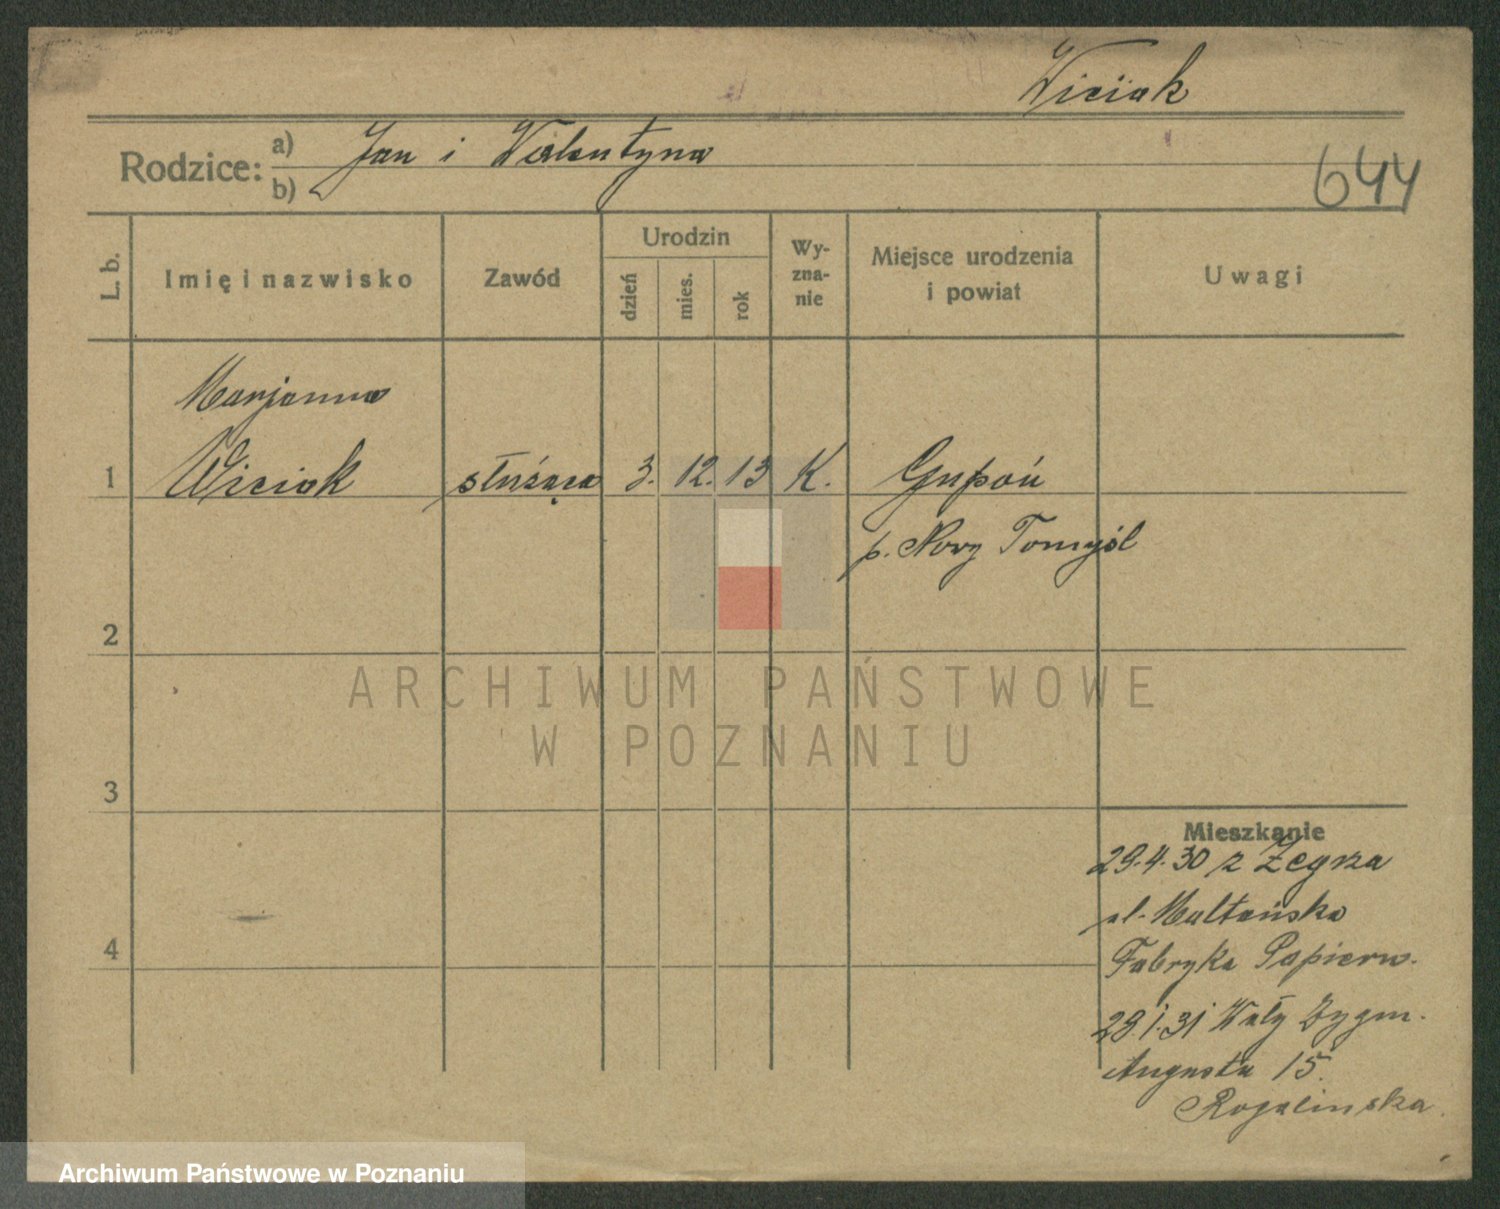 Wiciak
Rodzice: a) Jan i Walentyna
b)
644
L. b.
Imię i nazwisko
Zawód
Urodzin
dzień
mies.
rok
Wy-
zna-
nie
Miejsce urodzenia
i powiat
Uwagi
Marjanna
1 Wiciak służąca 3. 12. 13 K. Grupoń
p. Nowy Tomyśl
2
ARCHIWUM PAŃSTWOWE
W POZNANIU
3
Mieszkanie
29.4.30 z Żegrza
ul. Maltańska
4 Fabryka Papierw.
29.1.31 Wały Zygm.
Augusta 15.
Rogalinska
Archiwum Państwowe w Poznaniu